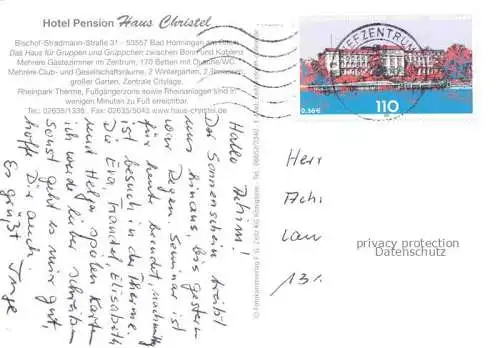 Hotel Pension Haus Christel
Bischof-Stradmann-Straße 31 - 53557 Bad Hönningen am Rhein
Das Haus für Gruppen und Grüppchen zwischen Bonn und Koblenz
Mehrere Gästezimmer im Zentrum, 170 Betten mit Dusche/WC
Mehrere Club- und Gesellschaftsräume, 2 Wintergärten, 2
großer Garten, Zentrale Citylage.
Rheinpark Therme, Fußgängerzone sowie Rheinanlagen sind in
wenigen Minuten zu Fuß erreichbar.
Tel.: 02635/1336 Fax: 02635/5043 www.haus-christel.de
BRIEFZENTRUM
0,56€
110
Hallo Achim!
Der Sonnenschein treibt
uns hinaus, bis gestern
war Regen. Seminar ist
für heute beendet, nachmittag
ist Besuch in der Therme.
Die Eva, Traudel, Elisabeth
und Helga spielen Karten
ich werde lieber schreiben
Sonst geht es mir gut,
hoffe Dir auch.
Es grüßt Inge
Herr
Achi
Lau
131
privacy protection
Datenschutz